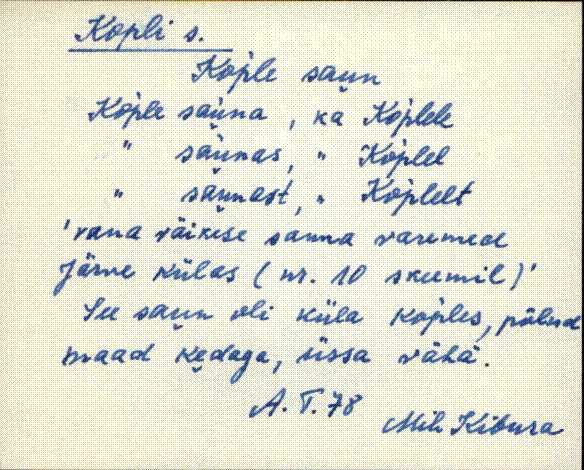 Kopli s.
Kop̀le sau̬n
Kop̀le sàu̬na , ka Kop̀lele
" sàu̬nas, " Kop̀lel
" sàu̬nast, " Kop̀lelt
'vana väikese sauna varemed
Järve külas (nr. 10 skeemil)'
See sau̬n oli küla kop̀les, põlnd
maad ke̬dagi, üssa vähä.
A. T. 78
Mih Kibura